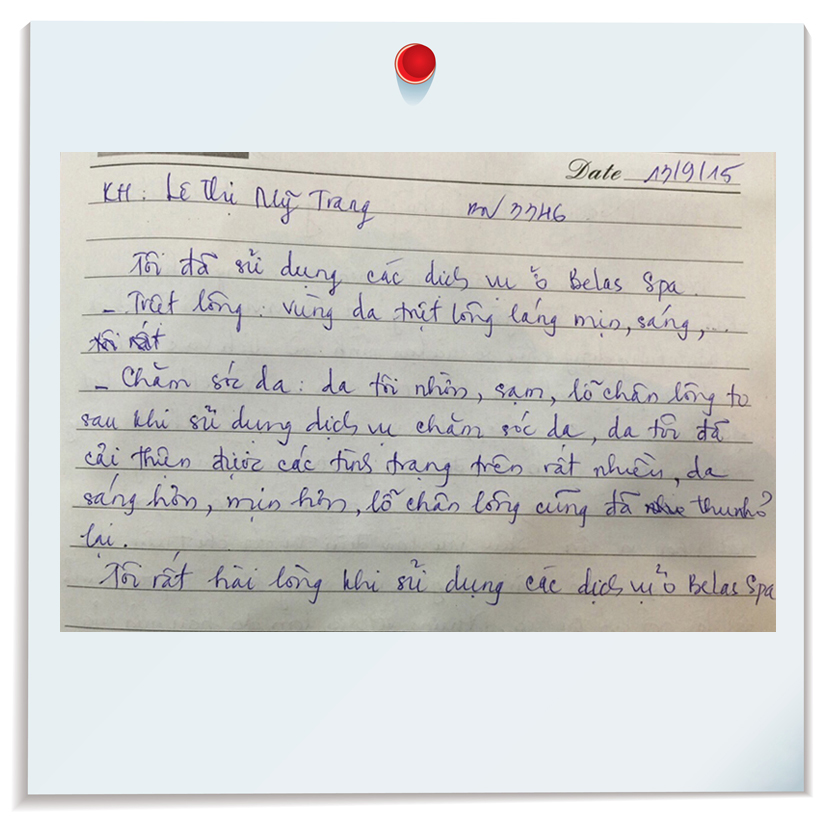 Date 17/9/15
KH: Lê Thị Mỹ Trang BN 3346
Tôi đã sử dụng các dịch vụ ở Belas Spa.
- Triệt lông: vùng da triệt lông láng mịn, sáng,...
tôi rất
- Chăm sóc da: da tôi nhờn, sạm, lỗ chân lông to
sau khi sử dụng dịch vụ chăm sóc da, da tôi đã
cải thiện được các tình trạng trên rất nhiều, da
sáng hơn, mịn hơn, lỗ chân lông cũng đã thu nhỏ
lại.
Tôi rất hài lòng khi sử dụng các dịch vụ ở Belas Spa